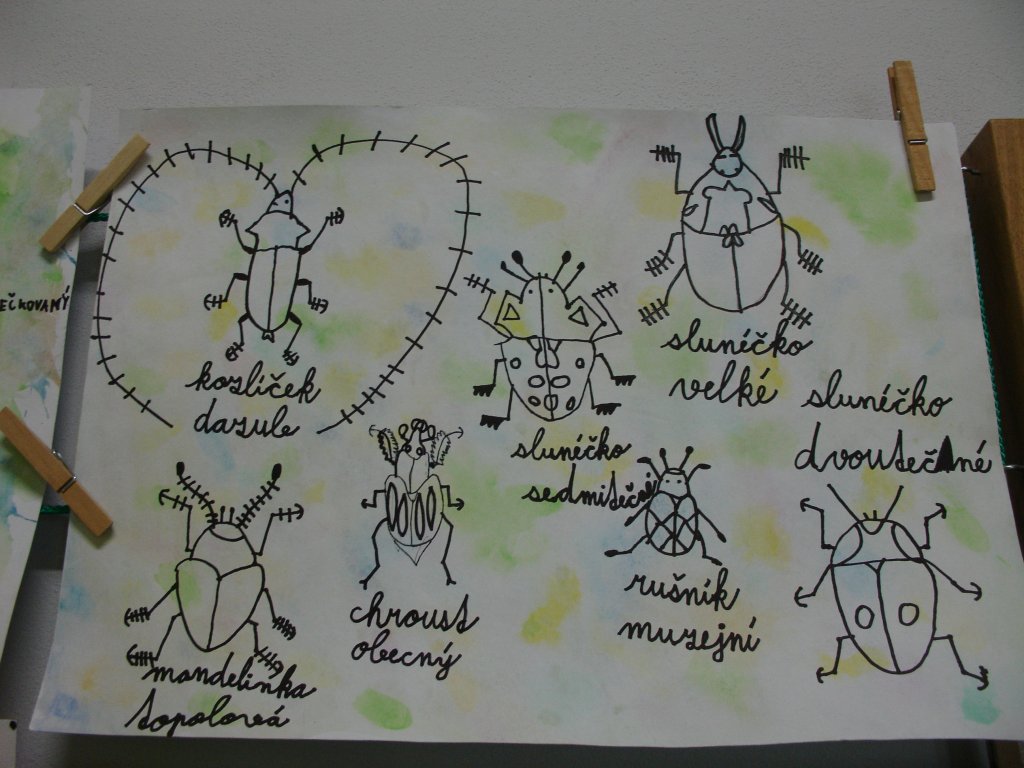 EČKOVANÝ
kozlíček
dazule
slunéčko
sedmiteč
slunéčko
velké
slunéčko
dvoutečné
mandelinka
topolová
chroust
obecný
rušník
muzejní